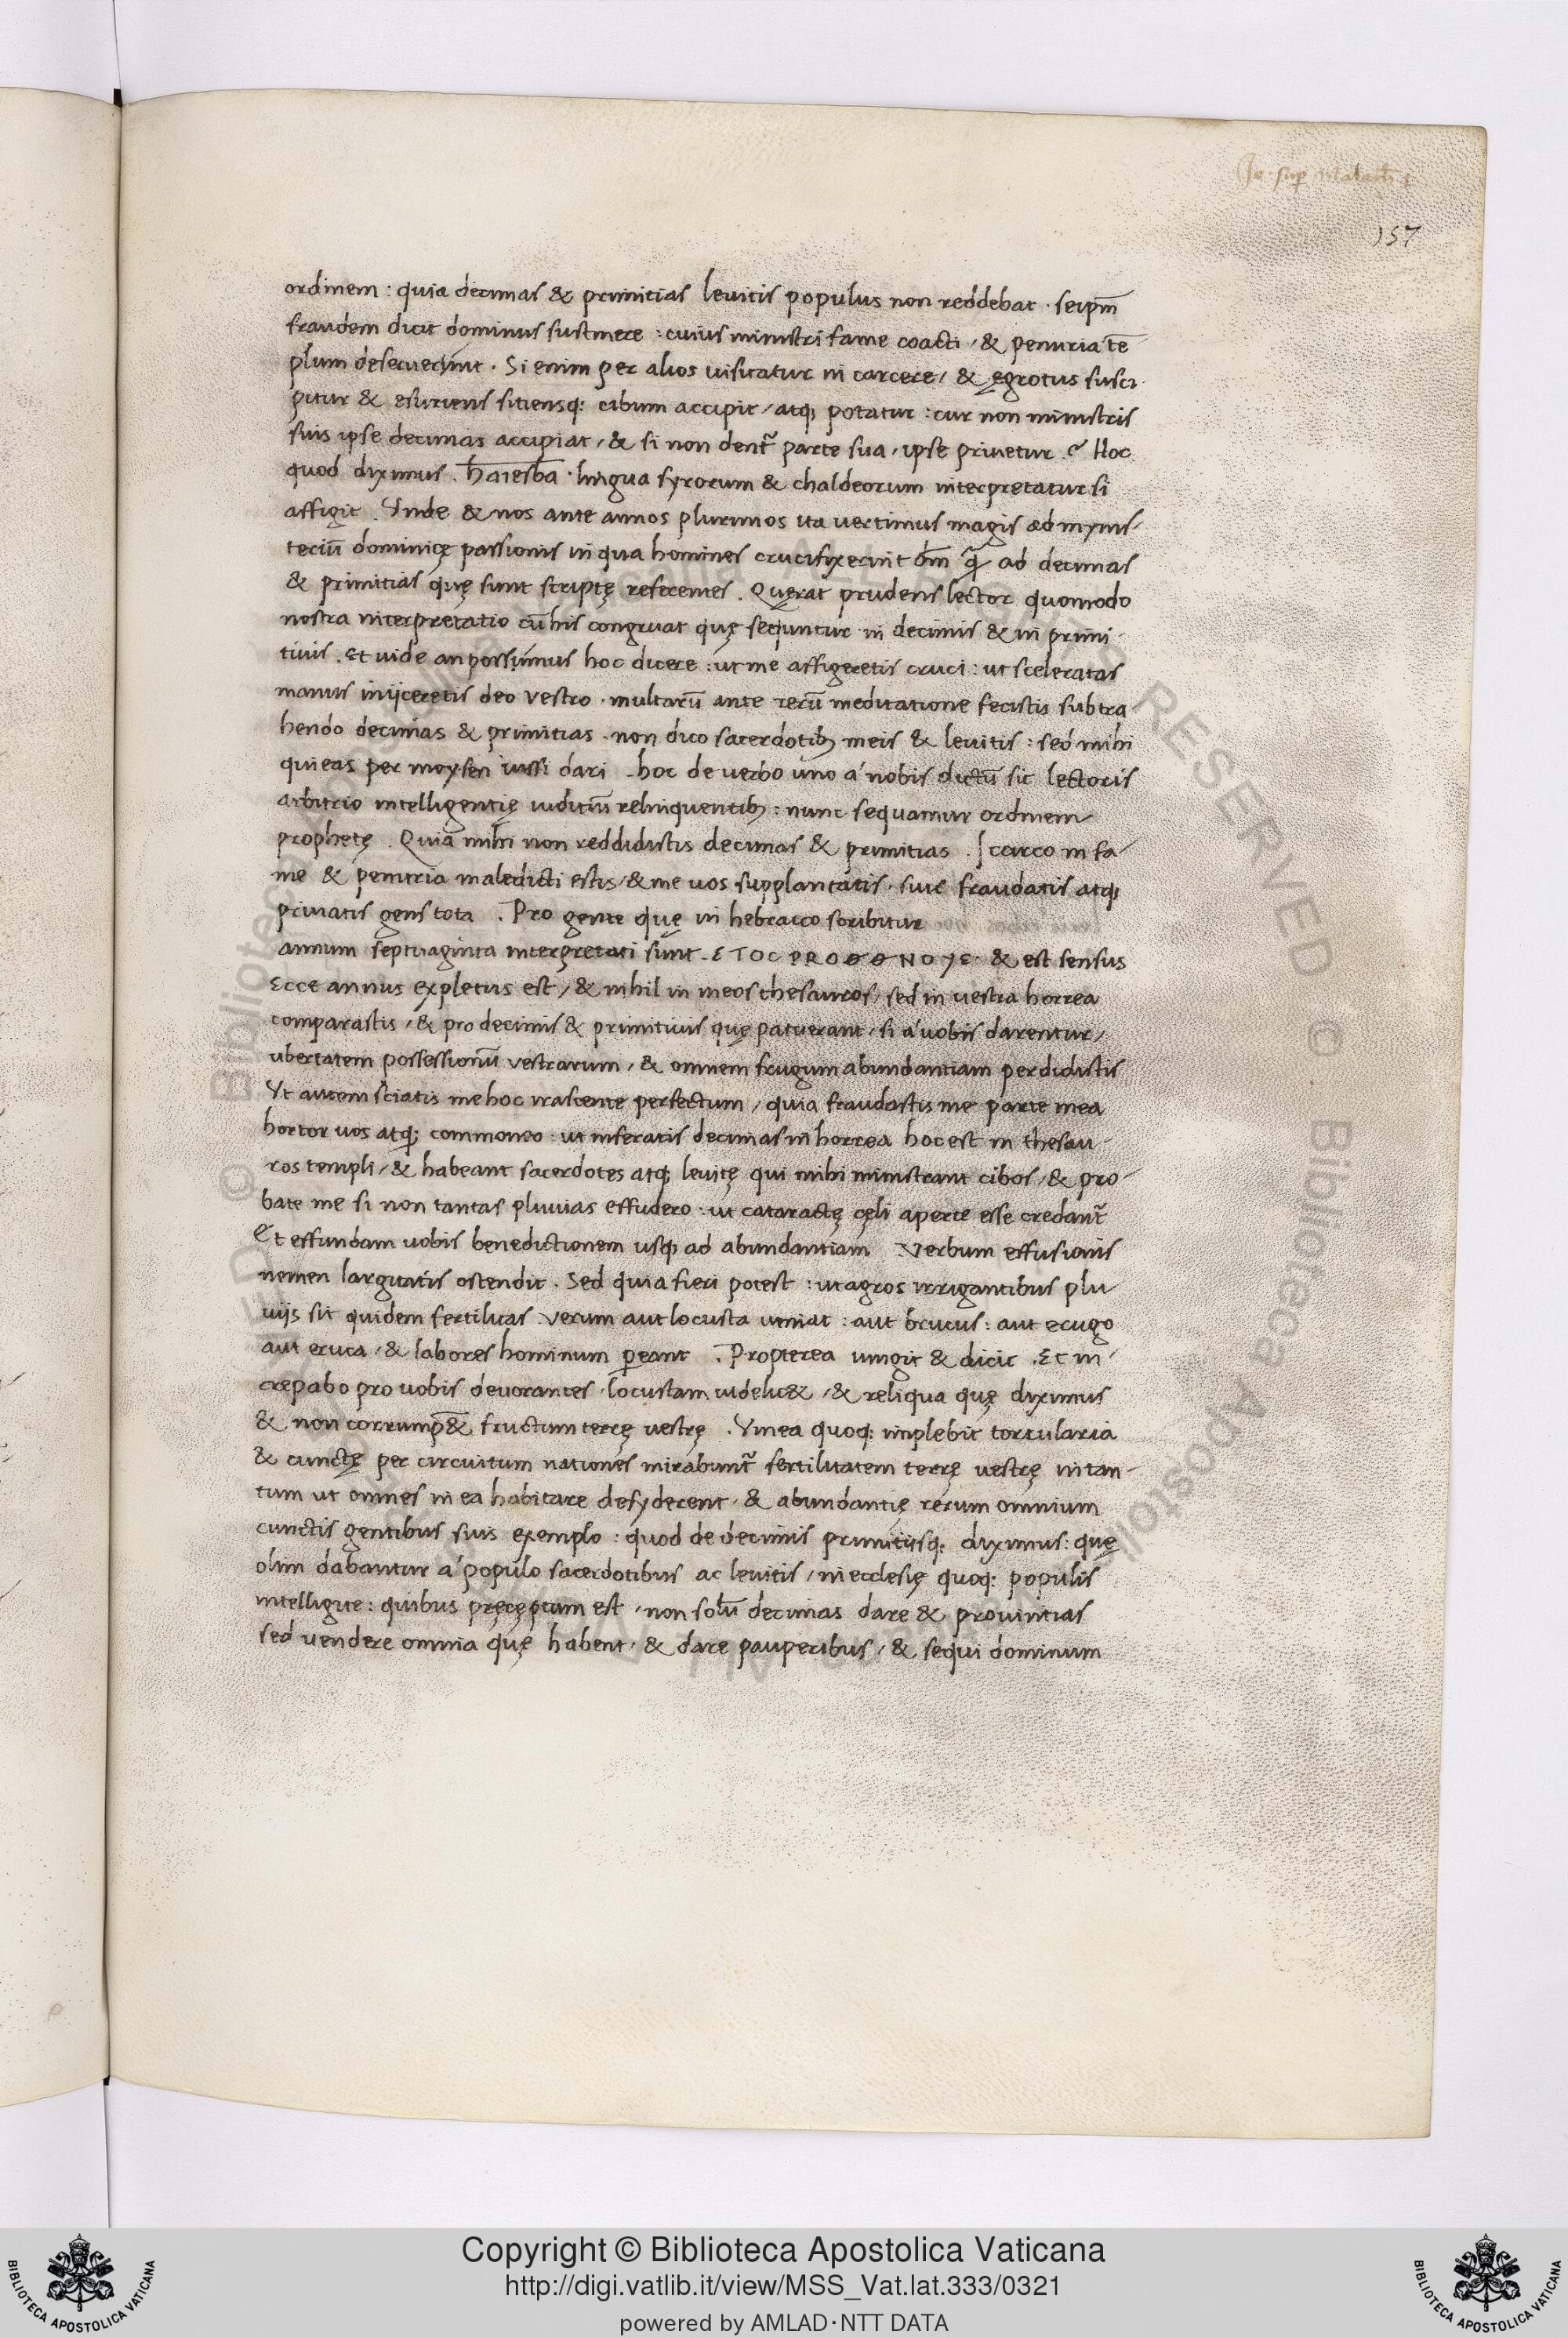 Je sup Malach
157
ordinem : quia decimas & primitias leuitis populus non reddebat · seipm̄
fraudem dicit dominus sustinere : cuius ministri fame coacti / & penuria tē
plum deseruerunt · Si enim per alios uisitatur in carcere / & ęgrotus susci
pitur & esuriens sitiensq; cibum accipit / atq; potatur : cur non ministris
suis ipse decimas accipiat / & si non dent᷑ parte sua / ipse priuetur ? Hoc
quod diximus . haiesba · lingua syrorum & chaldeorum interpretatur si
affigit . Vnde & nos ante annos plurimos ita uertimus magis ad mynis
teriū dominicę passionis in qua homines crucifixerint dm̄ q̄ ad decimas
& primitias quę sunt scriptę referentes . Quęrat prudens lector quomodo
nostra interpretatio cū his congruat quę sequntur in decimis & in primi
tiuis . Et uide an possimus hoc dicere : ut me affigeretis cruci : ut sceleratas
manus inijceretis deo vestro · multarū ante rerū meditatione fecistis subtra
hendo decimas & primitias · non dico sacerdotib; meis & leuitis : sed mihi
qui eas per moysen iussi dari . hoc de uerbo uno a nobis dictū sit lectoris
arbitrio intelligentię iuditiū relinquentib; : nunc sequamur ordinem
prophetę . Quia mihi non reddidistis decimas & primitias . Icarco in fa
me & penuria maledicti estis / & me uos supplantatis · siue fraudatis atq;
priuatis gens tota . Pro gente quę in hebraeo scribitur
annum septuaginta interpretati sunt . ETOC PROΘΘNOYE · & est sensus
Ecce annus expletus est / & nihil in meos thesauros / sed in uestra horrea
comparastis / & pro decimis & primitiuis quę patuerant / si a uobis darentur /
ubertatem possessionū vestrarum / & omnem frugum abundantiam perdidistis
Vt autem sciatis me hoc irascente perfectum / quia fraudastis me parte mea
hortor uos atq; commoneo : ut inferatis decimas in horrea hoc est in thesau
ros templi / & habeant sacerdotes atq; leuitę qui mihi ministrant cibos / & pro
bate me si non tantas pluuias effudero : ut cataractę cęli aperte esse credant᷑
Et effundam uobis benedictionem usq; ad abundantiam Verbum effusionis
nomen largitatis ostendit . Sed quia fieri potest : ut agros irrigantibus plu
uijs sit quidem fertilitas verum aut locusta ueniat : aut brucus : aut erugo
aut eruca / & labores hominum pereant . Propterea iungit & dicit . Et in
crepabo pro uobis deuorantes · locustam uidelic& / & reliqua quę diximus
& non corrump& fructum terrę uestrę . Vinea quoq; implebit torcularia
& cunctę per circuitum nationes mirabunt᷑ fertilitatem terrę uestrę in tan
tum ut omnes in ea habitare desyderent · & abundantię rerum omnium
cunctis gentibus suis exemplo : quod de decimis primitiisq; diximus : quę
olim dabantur a populo sacerdotibus ac leuitis / in ecclesię quoq; populis
intelligite : quibus pręceptum est / non solū decimas dare & prouintias
sed vendere omnia quę habent / & dare pauperibus / & sequi dominum
Copyright © Biblioteca Apostolica Vaticana
http://digi.vatlib.it/view/MSS_Vat.lat.333/0321
powered by AMLAD·NTT DATA